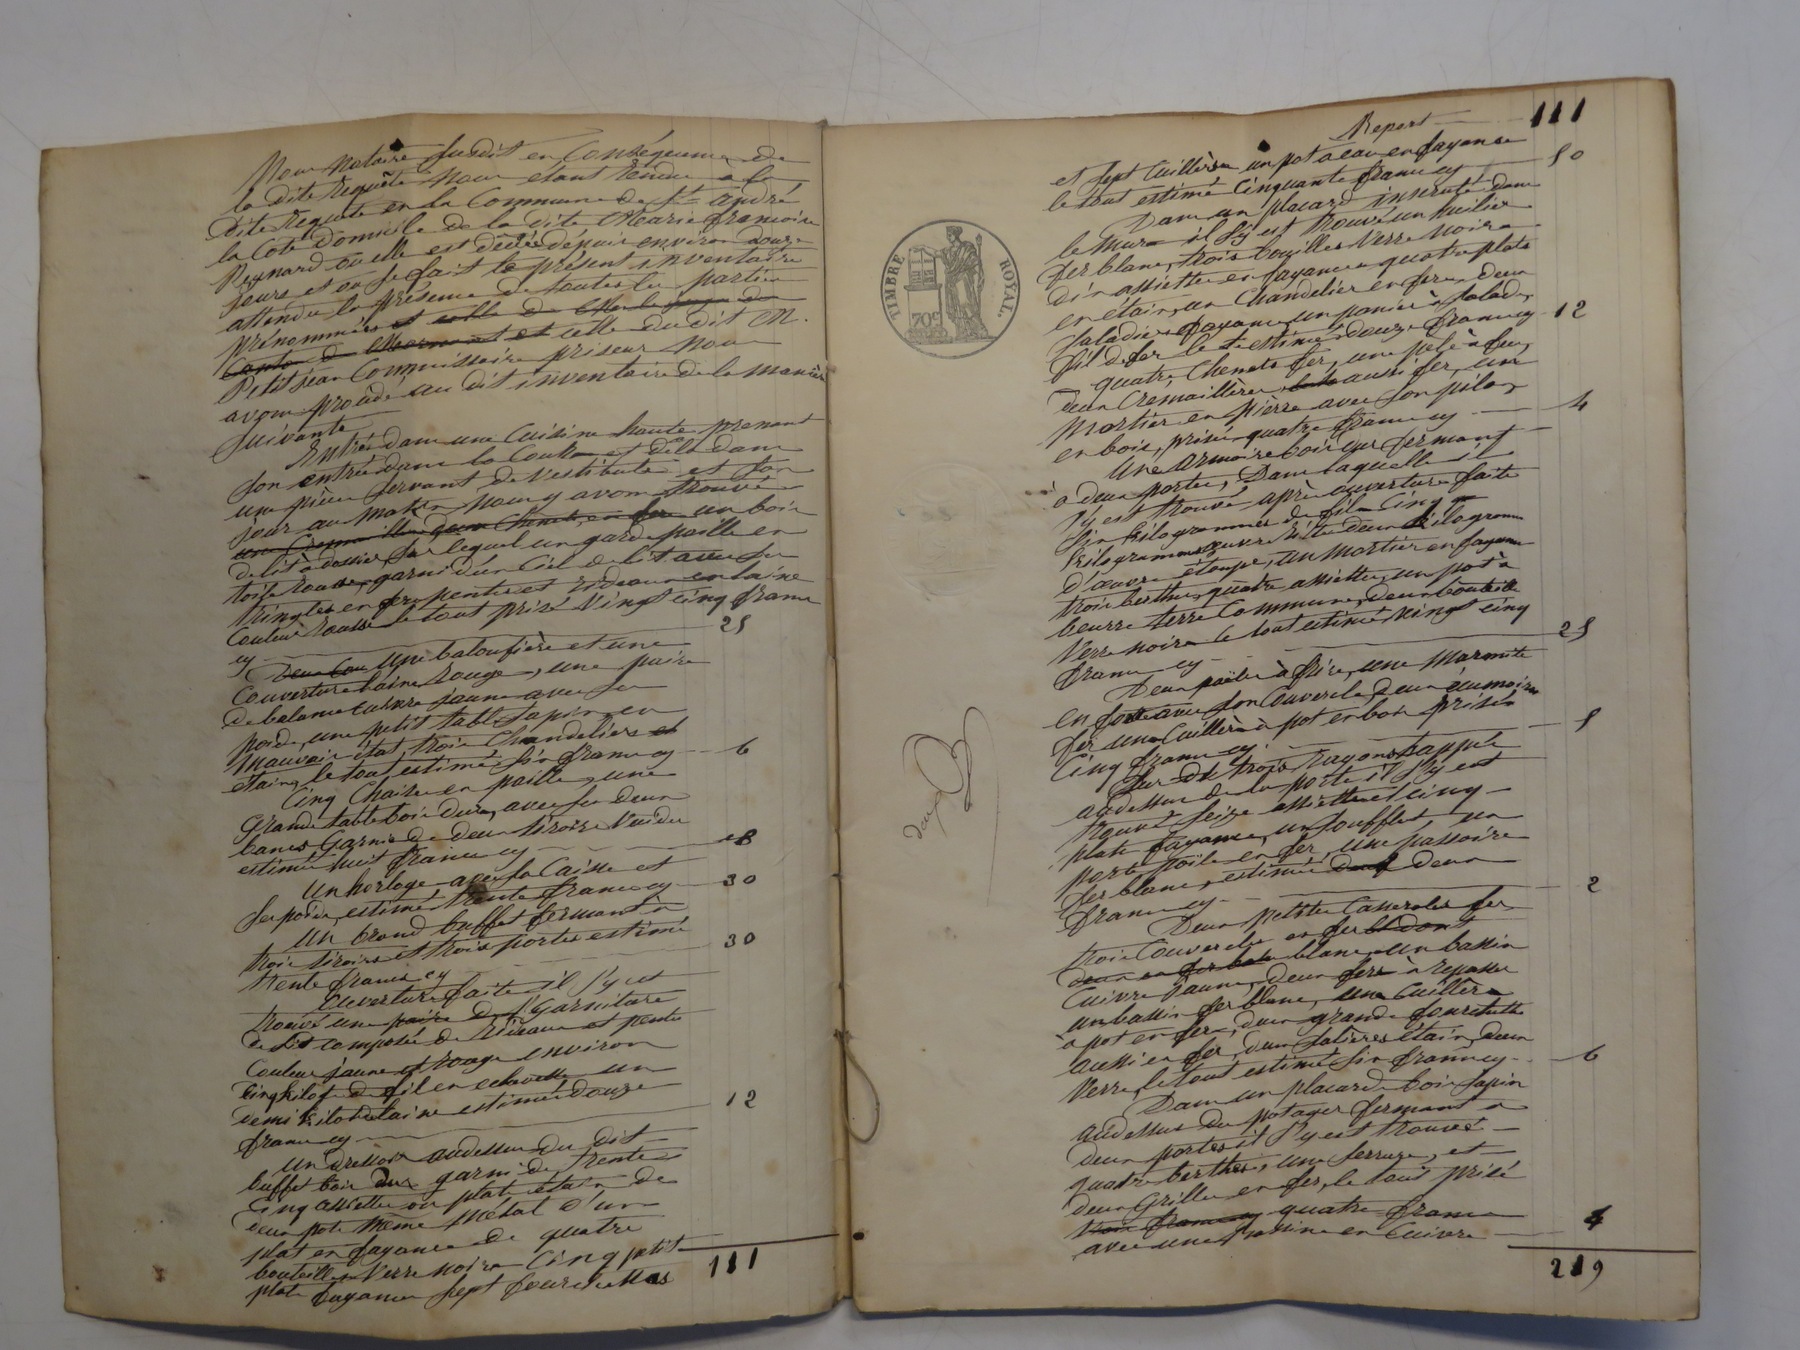 Nous notaire susdit en Conséquence de
la dite Requête Nous etant Rendu a la
dite Requete en la Commune de St. andré
la Cote Domicile de la dite Marie françoise
Reynard ou elle est décédée depuis environ douze
jours et ou se fait le présent inventaire
attendu la présence de toutes les parties
prénommées et celle de
Canton de et celle du dit M.
Petitjean Commissaire priseur Nous
avons procédé au dit inventaire de la manière
suivante
Entrés dans une Cuisine haute prenant
son entrée dans la Cour et dela dans
une pièce servant de Vestibule et son
jour au matin Nous y avons trouvé
une Cremaillère deux Chenets en fer un bois
de lit à dossier sur lequel un garde paille en
toile Rousse, garni d'un Ciel de lit avec ses
tringles en fer pentes et Rideaux en laine
Couleur Rousse le tout prisé Vingt cinq francs
cy 25
Une baloufière et une
Couverture laine Rouge, une paire
de balance cuivre jaune avec ses
poids, une petit table sapin en
Mauvais état, trois Chandeliers et
etaing le tout estimé six francs cy 6
Cinq Chaises en paille, une
grande table bois dur, avec ses deux
bancs Garnie de deux tiroirs Vuides
estimé huit francs cy 8
Un horloge avec sa Caisse et
ses poids, estimé trente francs cy 30
Un Grand buffet fermant à
trois tiroirs et trois portes estimé
trente francs cy 30
Ouverture faite il s'y est
trouvé une paire de Garniture
de Lit composée de Rideaux et pentes
Couleur jaune et rouge environ
Cinq kilog. de fil en echevette un
demi kilo de laine estimé douze
francs cy 12
Un dressoir audessus du dit
buffet bois dur garni de trente
cinq assiettes ou plats étain de
deux pots même métal d'un
plat en fayance de quatre
bouteilles Verre noire Cinq petit
plats fayance sept fourchettes
111
Report 111
et sept Cuillères un pot a eau en fayance
le tout estimé Cinquante francs cy 50
Dans un placard inseruté dans
le Mur il s'y est trouvé un huilier
fer blanc, trois bouilles Verre noire
dix assiettes en fayance quatre plats
en étain, un Chandelier en fer, deux
saladiers fayance, un panier à salade
fil de fer le t. estimé douze francs cy 12
quatre Chenets fer, une pele à feu,
deux Cremaillères, aussi fer, un
Mortier en pierre avec son pilon
en bois, prisé quatre francs cy 4
Une armoire bois dur fermant
a deux portes, Dans laquelle il
s'y est trouvé après ouverture faite
Six kilogrammes de fil Cinq
kilogrammes œuvre Ritte deux kilogrammes
d'œuvre étoupe, un Mortier en fayance
trois berthes, quatre assiettes, un pot à
beurre terre Commune, deux bouteilles
Verre noire le tout estimé vingt cinq
francs cy 25
Deux poëles à frire, une Marmite
en fonte avec son Couvercle, deux écumoires
fer une Cuillère à pot en bois prisés
Cinq francs cy 5
Sur trois Rayons sapin
audessus de la porte il s'y est
trouvé Seize assiettes et cinq
plats fayance, un soufflet, un
porte poële en fer, une passoire
fer blanc, estimé deux
francs cy 2
Deux petites Casseroles fer
trois Couvercles en fer
blanc un bassin
Cuivre jaune, deux fers à repasser
un bassin fer blanc, une Cuillère
à pot en fer, deux grandes fourchettes
aussi en fer, deux salières étain, deux
Verres, le tout estimé six francs cy 6
Dans un placard bois sapin
audessus du potager fermant a
deux portes il s'y est trouvés
quatre berthes, une serrure, et
deux Grilles en fer, le tout prisé
trois francs cy quatre francs 4
avec une bassine en Cuivre
219
TIMBRE ROYAL.
70c